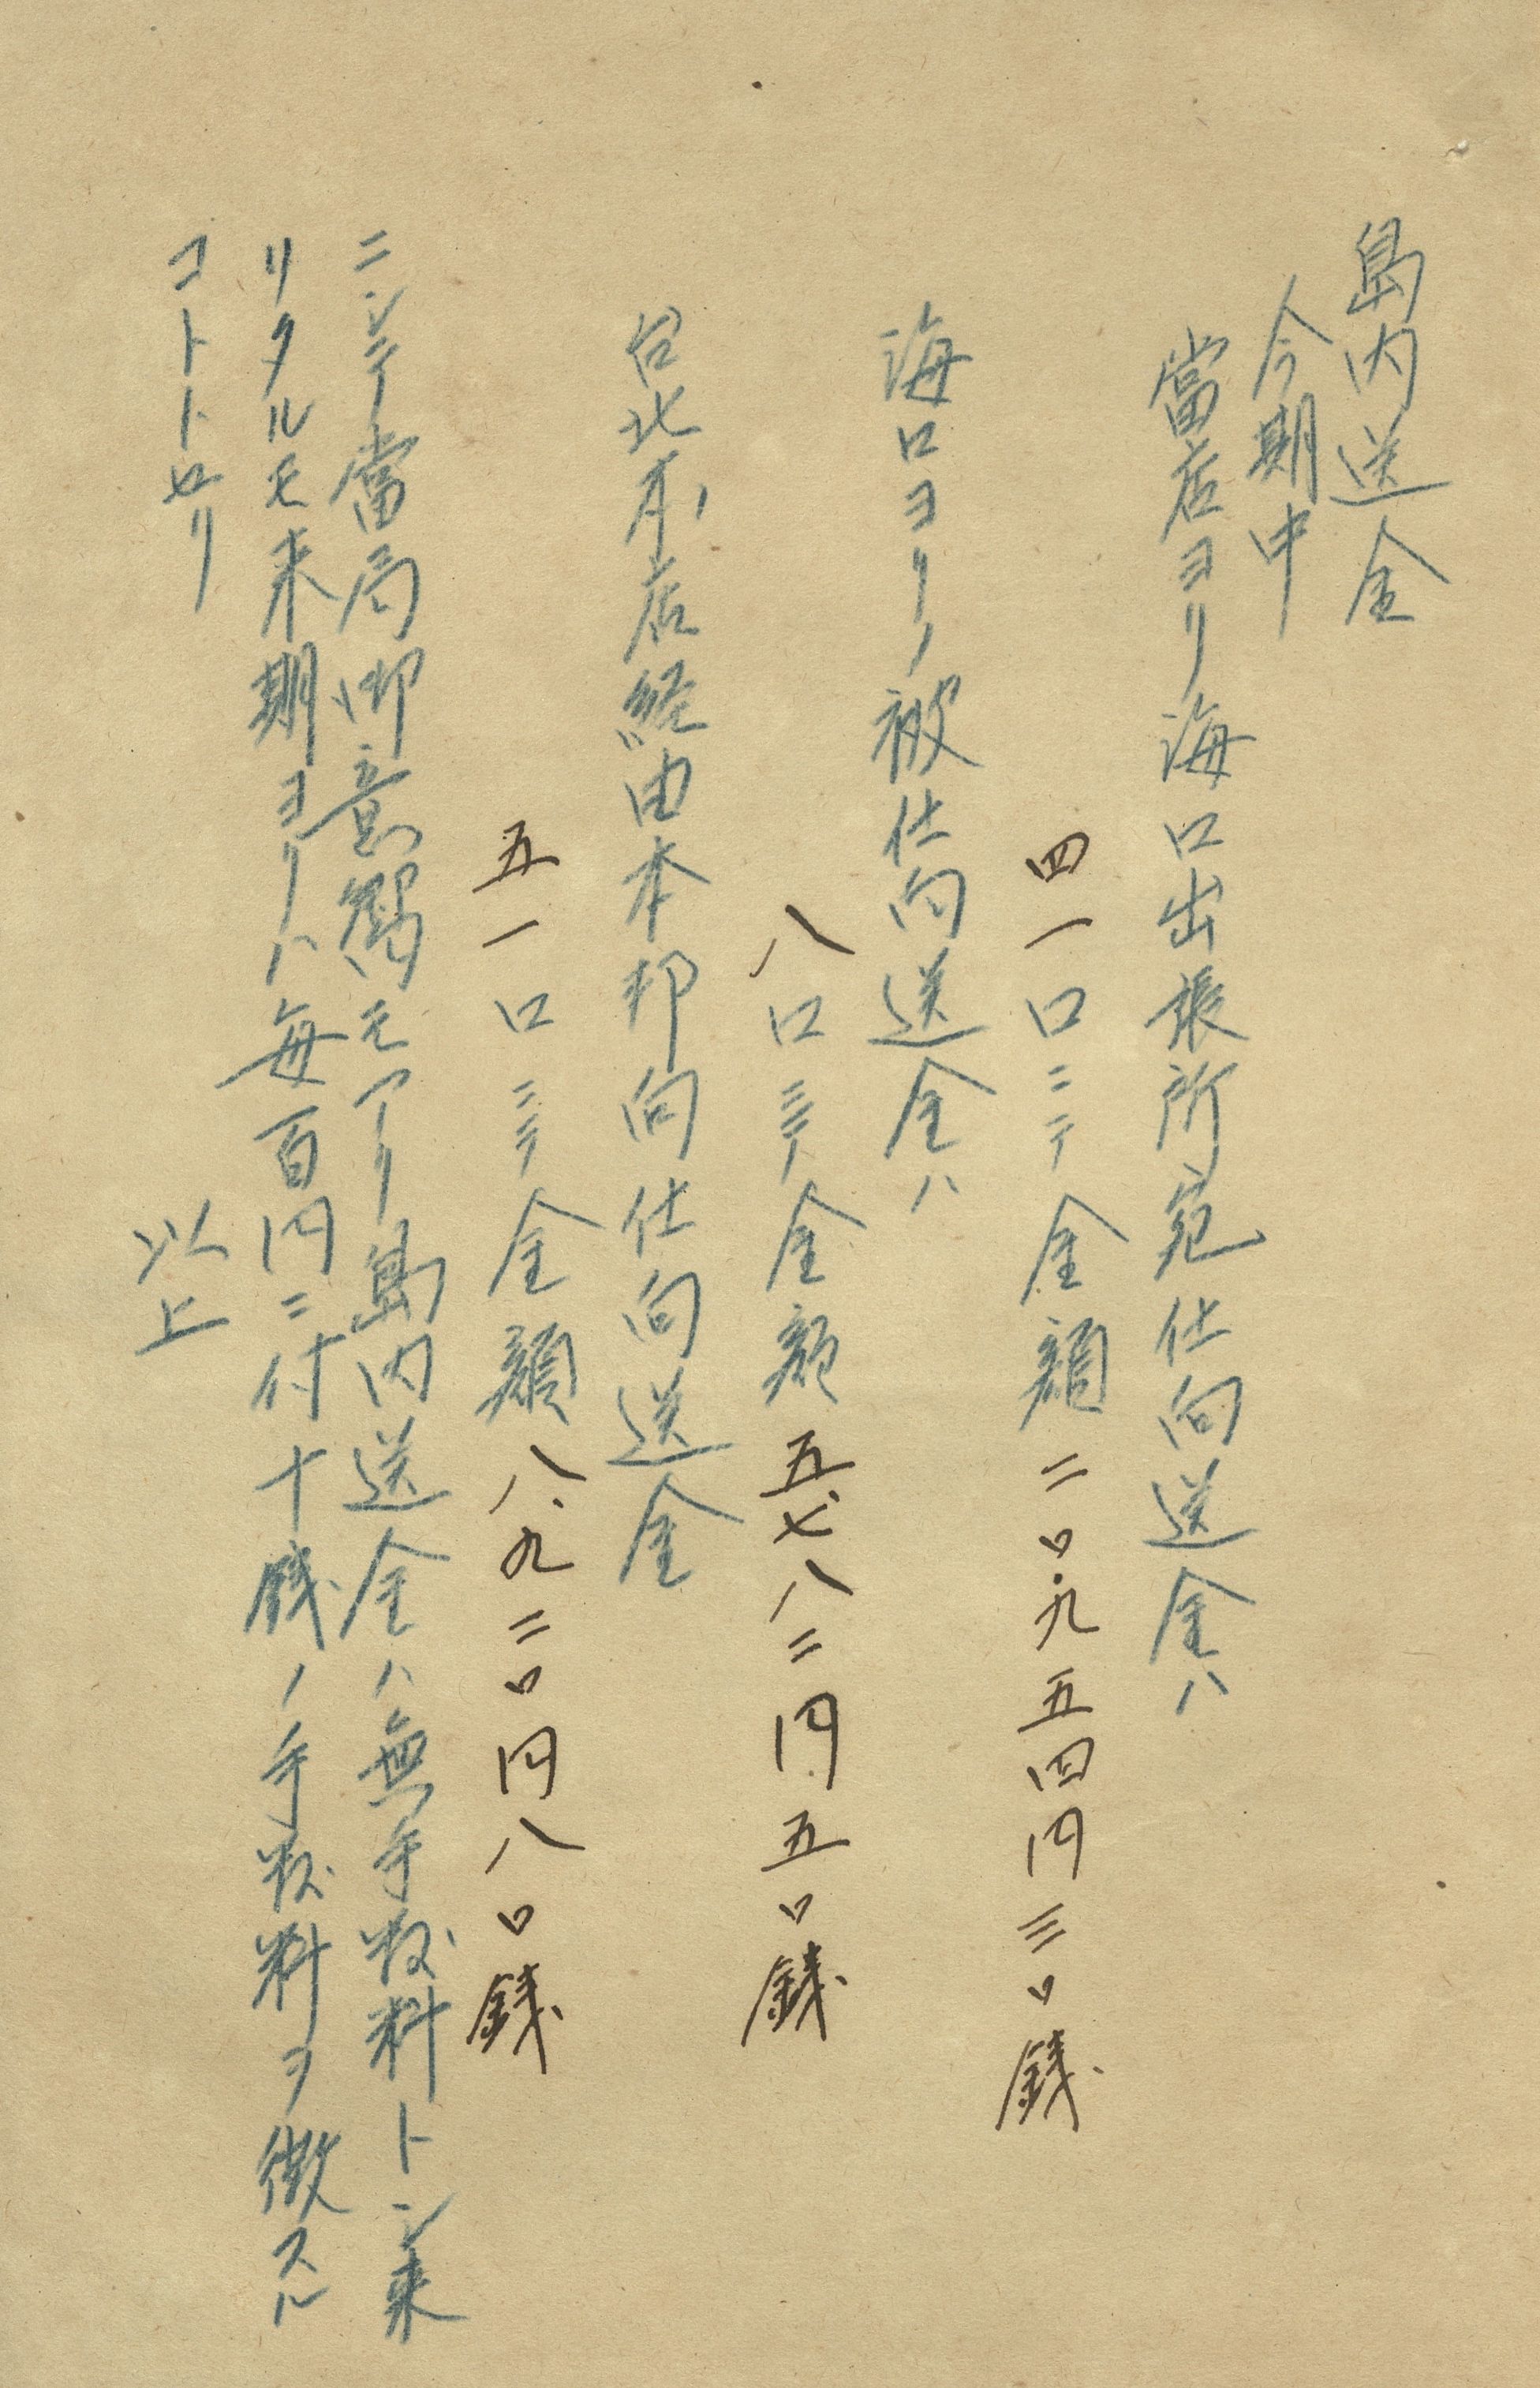 島内送金
今期中
當店ヨリ海口出張所宛仕向送金ハ
四一口ニテ金額二〇.九五四円三〇銭
海口ヨリノ被仕向送金ハ
八口ニテ金額五、七八二円五〇銭
台北本店経由本邦向仕向送金
五一口ニテ金額八、九二〇円八〇銭
ニシテ當局御意嚮モアリ島内送金ハ無手数料トシ来
リタルモ来期ヨリハ毎百円ニ付十銭ノ手数料ヲ徴スル
コトトセリ
以上